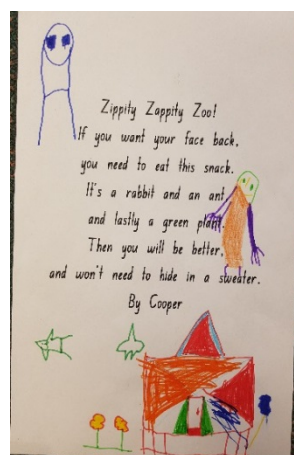 Zippity Zappity Zoo!
If you want your face back,
you need to eat this snack.
It's a rabbit and an ant
and lastly a green plant.
Then you will be better,
and won't need to hide in a sweater.
By Cooper